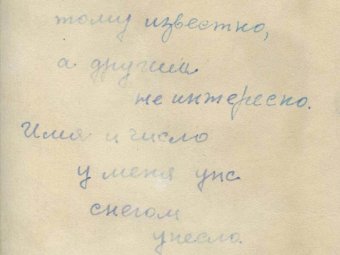 тому известно,
а другим
не интересно.
Имя и число
у меня упс
снегом
унесло.